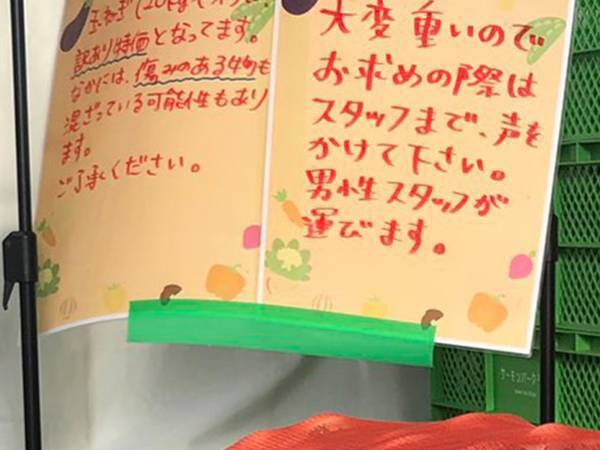 玉ねぎ(20kg
訳あり特価となってます。
なかには、傷みのある物も
混ざっている可能性もあり
ます。
ご了承ください。
大変重いので
お求めの際は
スタッフまで、声を
かけて下さい。
男性スタッフが
運びます。
サーモンパーク